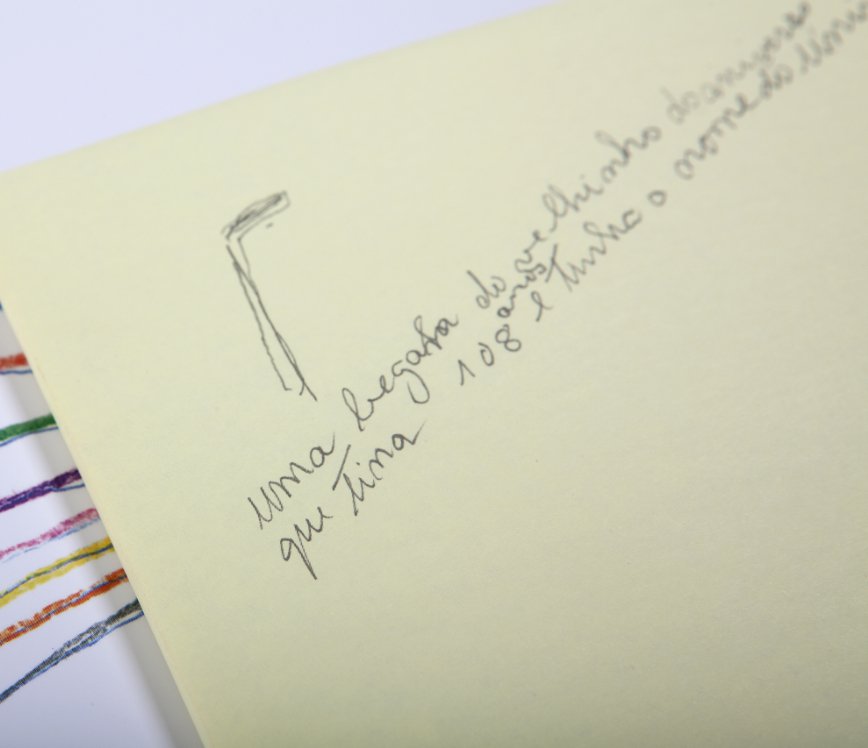 uma begala do velhinho do univers
que tina 108 anos e tinha o nome do